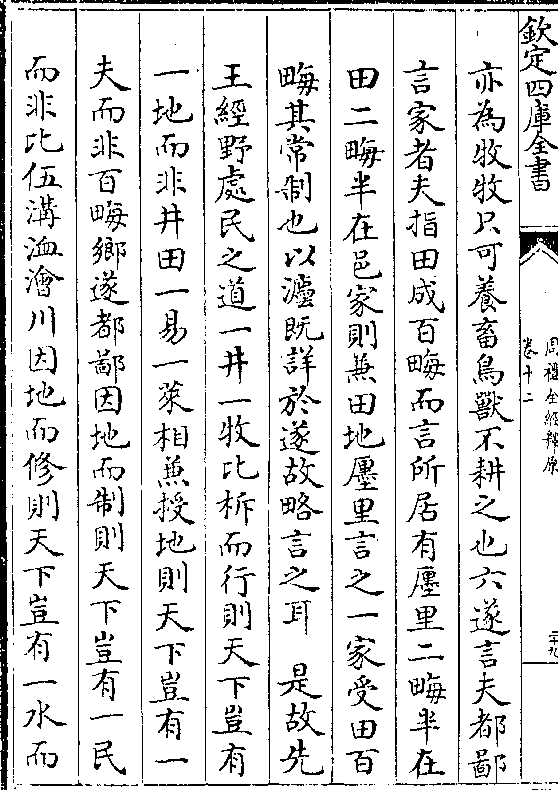 欽定四庫全書
周禮全經釋原
卷十二
二十九
亦為牧牧只可養畜鳥獸不耕之也六遂言夫都鄙
言家者夫指田成百畮而言所居有廛里二畮半在
田二畮半在邑家則兼田地廛里言之一家受田百
畮其常制也以瀍既詳於遂故略言之耳　是故先
王經野處民之道一井一牧比柝而行則天下豈有
一地而非井田一易一萊相兼授地則天下豈有一
夫而非百畮鄉遂都鄙因地而制則天下豈有一民
而非比伍溝洫澮川因地而修則天下豈有一水而